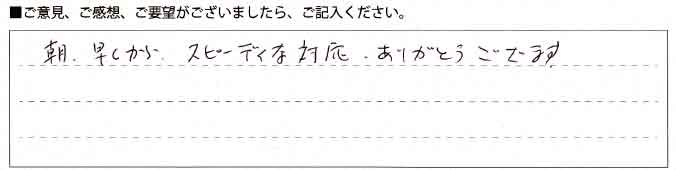 ■ご意見、ご感想、ご要望がございましたら、ご記入ください。
朝、早くから、スピーディな対応、ありがとうございます